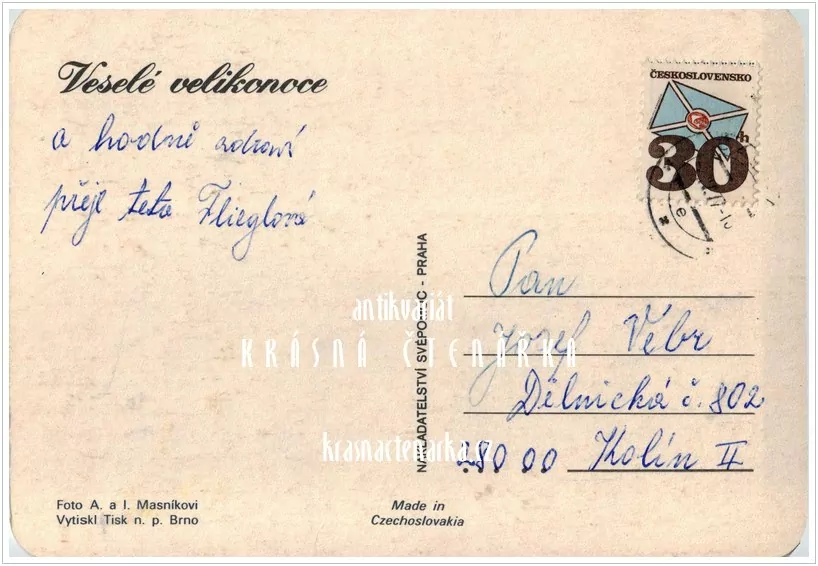 Veselé velikonoce
a hodně zdraví
přeje teta Flieglová
ČESKOSLOVENSKO
30h
NAKLADATELSTVÍ SVÉPOMOC - PRAHA
Pan
Jozef Vébr
Dělnická č. 802
28000 Kolín II
antikvariát
KRÁSNÁ ČTENÁŘKA
krasnactenarka.cz
Foto A. a I. Masníkovi
Vytiskl Tisk n. p. Brno
Made in
Czechoslovakia